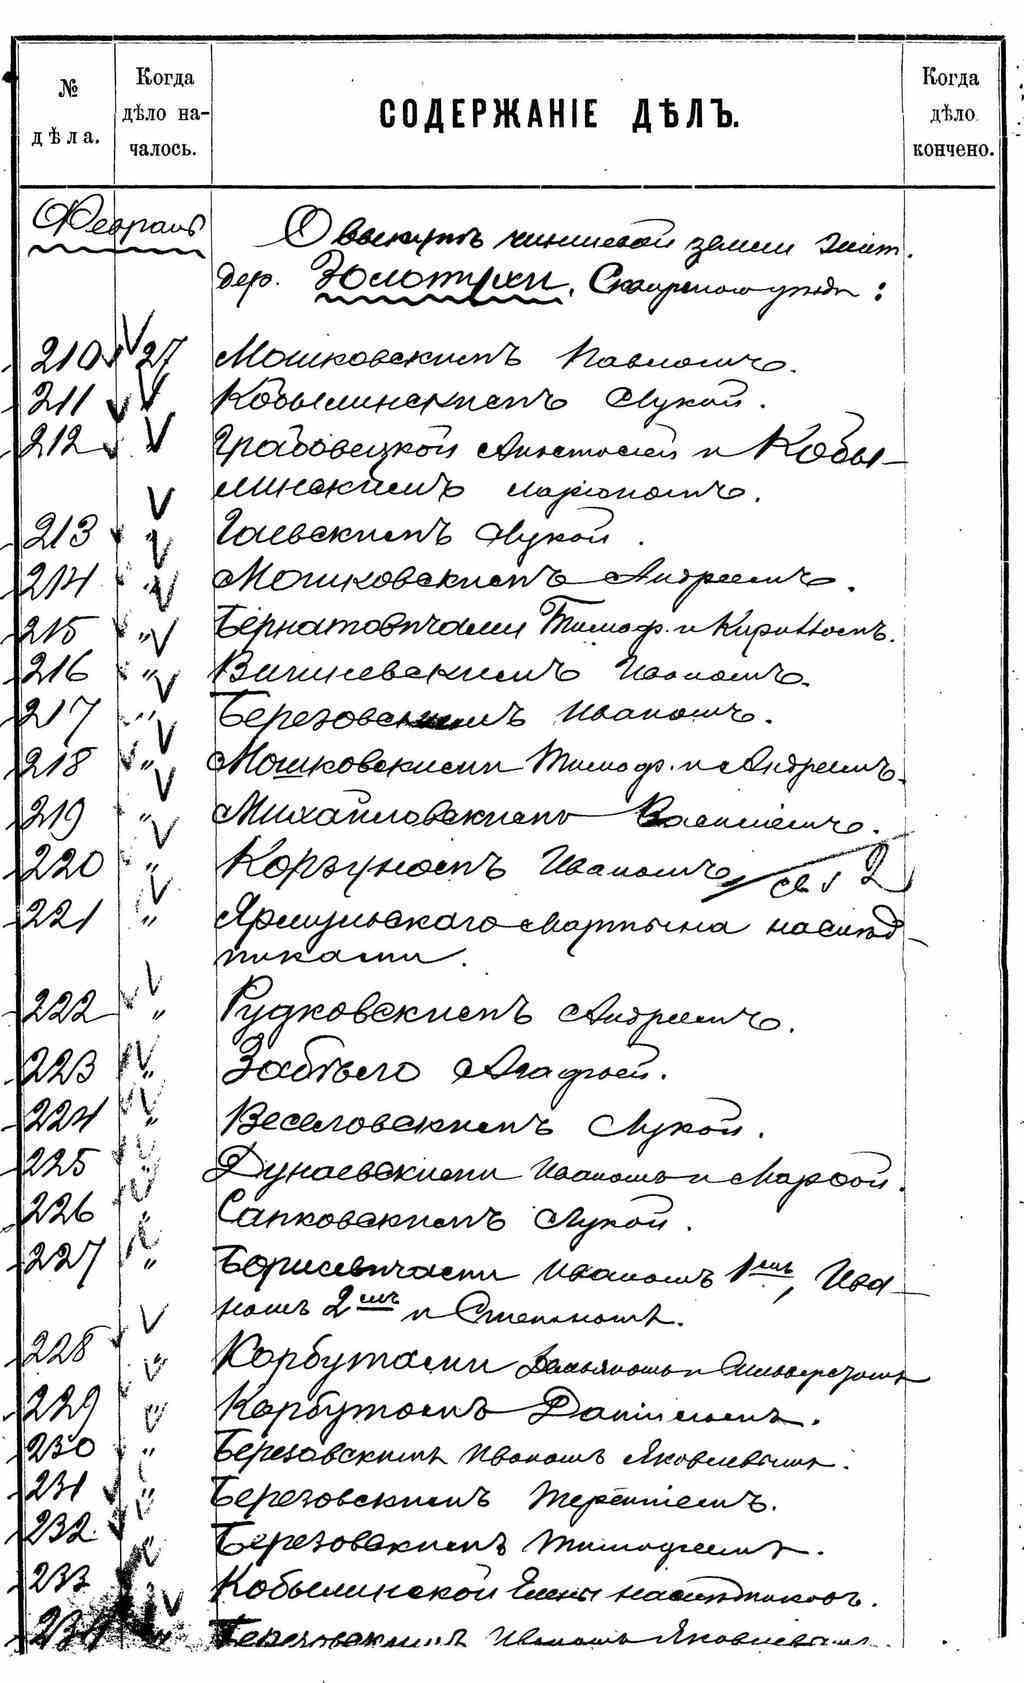 № дѣла.
Когда дѣло началось.
СОДЕРЖАНІЕ ДѢЛЪ.
Когда дѣло кончено.
Февраль
О выкупѣ чиншевой земли жит.
дер. Золотухи, Сквирского уѣзда:
210 27 Мошковскимъ Павломъ.
211 Кобылинскимъ Лукой.
212 Грабовецкой Анастасіей и Кобы-
линскимъ Ларіономъ.
213 " Гаевскимъ Лукой.
214 " Мошковскимъ Андреемъ.
215 " Бернатовичами Тимоф. и Кирилломъ.
216 " Вишневскимъ Иваномъ.
217 " Березовскимъ Иваномъ.
218 " Мошковскими Тимоф. и Андреемъ.
219 " Михайловскимъ Василіемъ.
220 " Корзуномъ Иваномъ
221 " Ярмульскаго Мартына наслѣд-
никами.
222 " Рудковскимъ Андреемъ.
223 " Забѣлло Агафіей.
224 " Веселовскимъ Лукой.
225 " Дунаевскими Иваномъ и Марфой.
226 " Сапковскимъ Лукой.
227 " Борисевичами Иваномъ 1мъ, Ива-
номъ 2мъ и Степаномъ.
228 " Карбутами и
229 " Карбутомъ Даніиломъ.
230 " Березовскимъ Иваномъ Яковлевымъ.
231 " Березовскимъ Терентіемъ.
232 " Березовскимъ Тимофеемъ.
233 " Кобылинской Елены наслѣдниковъ.
234 " Березовскимъ Иваномъ Яковлевымъ.